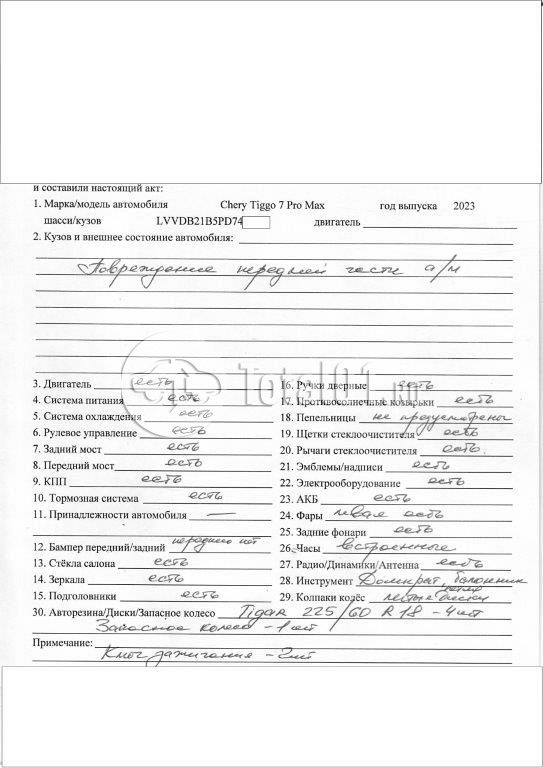 и составили настоящий акт:
1. Марка/модель автомобиля Chery Tiggo 7 Pro Max год выпуска 2023
шасси/кузов LVVDB21B5PD74 двигатель
2. Кузов и внешнее состояние автомобиля:
Повреждение передней части а/м
Total01.ru
3. Двигатель есть 16. Ручки дверные есть
4. Система питания есть 17. Противосолнечные козырьки есть
5. Система охлаждения есть 18. Пепельницы не предусмотрено
6. Рулевое управление есть 19. Щетки стеклоочистителя есть
7. Задний мост есть 20. Рычаги стеклоочистителя есть
8. Передний мост есть 21. Эмблемы/надписи есть
9. КПП есть 22. Электрооборудование есть
10. Тормозная система есть 23. АКБ есть
11. Принадлежности автомобиля — 24. Фары левая есть
25. Задние фонари есть
12. Бампер передний/задний переднего нет 26. Часы встроенные
13. Стёкла салона есть 27. Радио/Динамики/Антенна есть
14. Зеркала есть 28. Инструмент Домкрат, балонник
15. Подголовники есть 29. Колпаки колёс литые диски
30. Авторезина/Диски/Запасное колесо Tigar 225/60 R18 - 4шт
Запасное колесо - 1шт
Примечание:
Ключ зажигания - 2шт